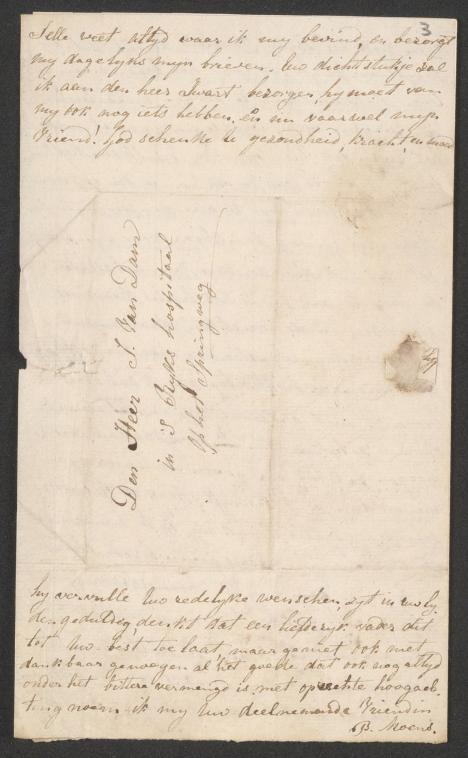 3
Jelle weet altyd waar ik my bevind, en bezorgt
my dagelyks myn brieven. Uw dichtstukje zal
ik aan den heer Swart bezorgen, hy moest van
my ook nog iets hebben, en nu vaarwel myn
Vriend! God schenke u gezondheid, kracht, en moed
Den Heer S. Van Dam
in 's Ryks hospitaal
op het Springweg
hy vervulle uw redelyke wenschen, zyt in uw ly-
den geduldig, denkt dat een liefderyk vader dit
tot uw best toe laat, maar geniet ook met
dankbaar genoegen al het goede dat ook nog altyd
onder het bittere vermengd is, met oprechte hoogach-
ting noem ik my uw deelnemende Vriendin
B. Moens.